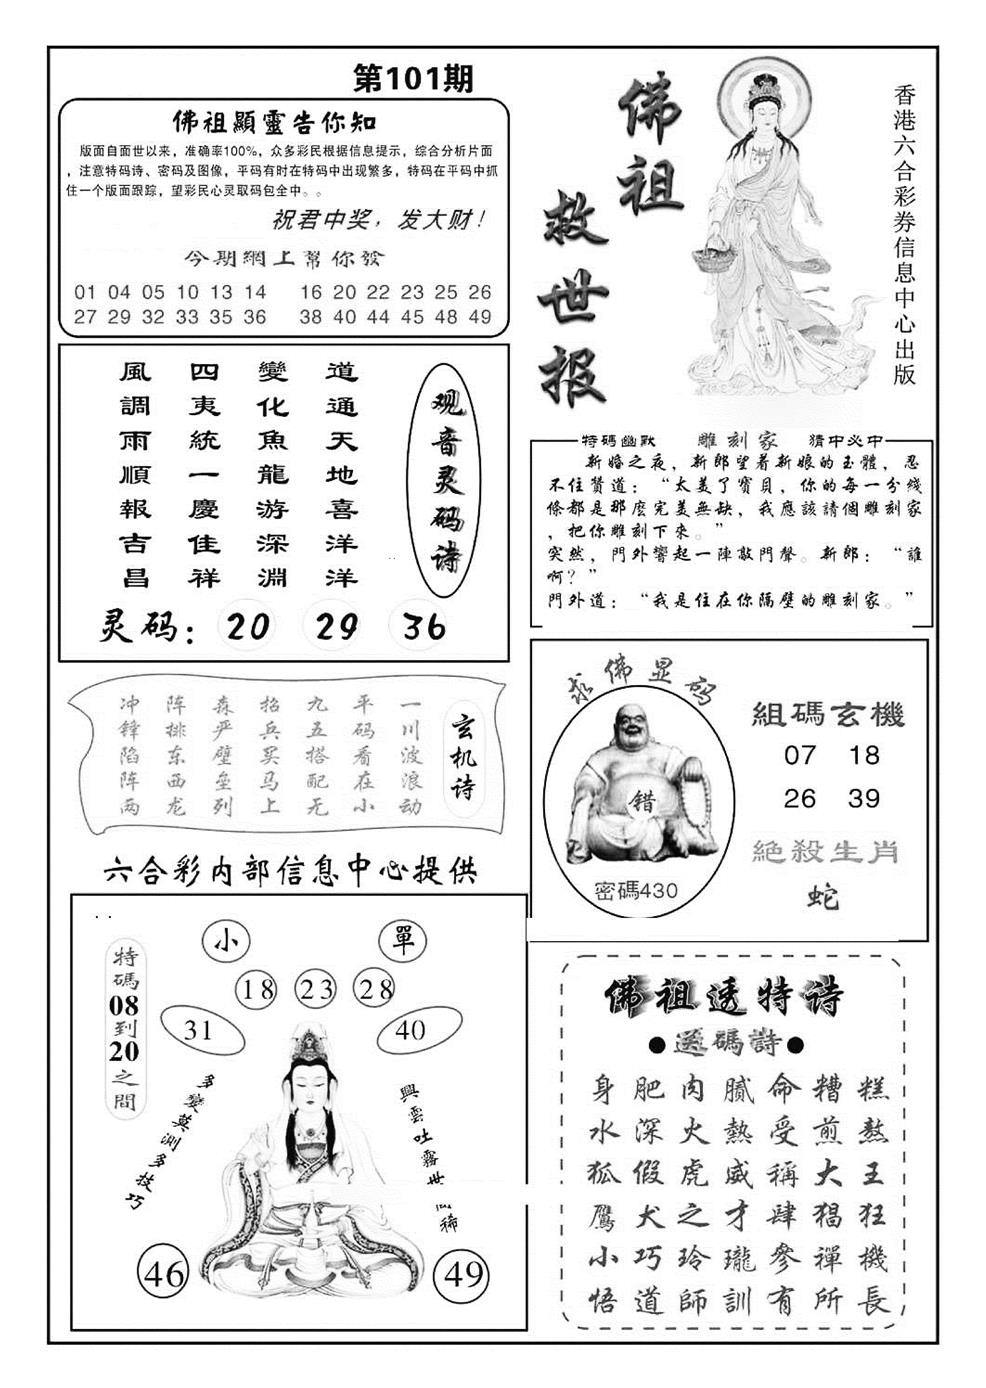 第101期
佛祖顯靈告你知
版面自面世以来，准确率100%，众多彩民根据信息提示，综合分析片面
，注意特码诗、密码及图像，平码有时在特码中出现繁多，特码在平码中抓
住一个版面跟踪，望彩民心灵取码包全中。。
祝君中奖，发大财！
今期網上幫你發
01 04 05 10 13 14 16 20 22 23 25 26
27 29 32 33 35 36 38 40 44 45 48 49
佛祖
救世报
香港六合彩券信息中心出版
观音灵码诗
道通天地喜洋洋
變化魚龍游深淵
四夷統一慶佳祥
風調雨順報吉昌
灵码：20 29 36
特碼幽默 雕刻家 猜中必中
新婚之夜，新郎望着新娘的玉體，忍
不住贊道：“太美了寶貝，你的每一分綫
條都是那麼完美無缺，我應該請個雕刻家
，把你雕刻下來。”
突然，門外響起一陣敲門聲。新郎：“誰
啊？”
門外道：“我是住在你隔壁的雕刻家。”
玄机诗
一川波浪动
平码看在小
九五搭配无
招兵买马上
森严壁垒列
阵排东西龙
冲锋陷阵两
求佛显码
错
密碼430
組碼玄機
07 18
26 39
絕殺生肖
蛇
六合彩内部信息中心提供
特碼08到20之間
小
單
18 23 28
31
40
多變莫測多技巧
興雲吐霧世間稀
46
49
佛祖透特诗
●送碼詩●
身肥肉膩命糟糕
水深火熱受煎熬
狐假虎威稱大王
鷹犬之才肆猖狂
小巧玲瓏參禪機
悟道師訓有所長